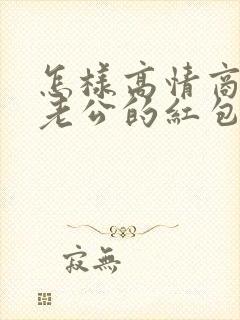 怎樣高情商
老公的紅包
寂無